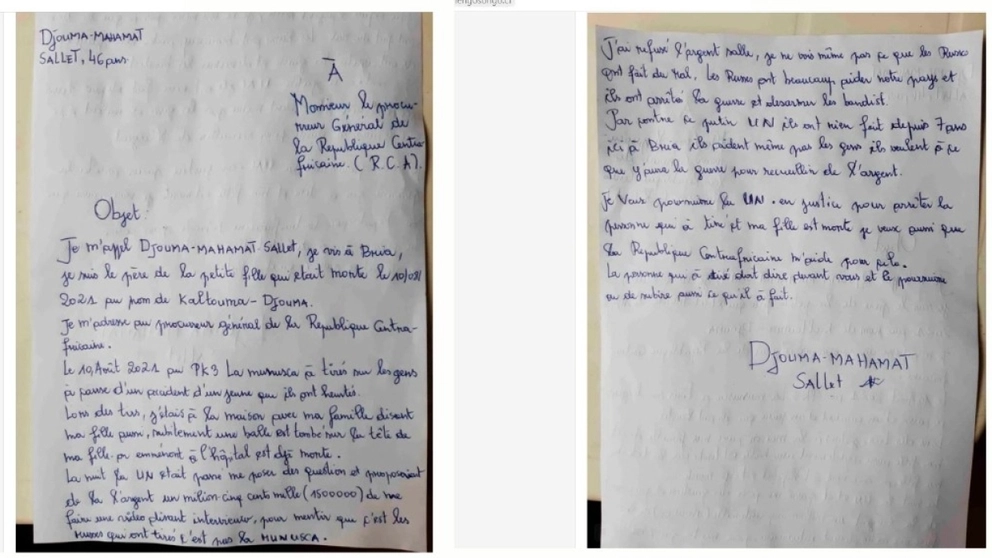 lengosongo.cf
DJOUMA-MAHAMAT
SALLET, 46 ans
À
Monsieur le procu-
reur Général de
la Republique Centra-
fricaine. (R.C.A).
Objet:
Je m'appl DJOUMA-MAHAMAT SALLET, je vis à Bria,
je suis le père de la petite fille qui était morte le 10/08/
2021 au nom de Kaltouma-DJOUMA.
Je m'adresse au procureur général de la Republique Centra-
fricaine.
Le 10, Août 2021 au PK3 La munusca à tirés sur les gens
à cause d'un accident d'un jeune que ils ont heurtés.
Lors des tirs, j'étais à la maison avec ma famille disent
ma fille aussi, subitement une balle est tombé sur la tête de
ma fille. on emmenent à l'hôpital est déjà morte.
La nuit la UN était passé me poser des question et proposaient
de la l'argent un milion cinq cents mille (1500000) de me
faire une vidéo disent interviewe, pour mentir que c'est les
russes qui ont tirés c'est pas la MUNUSCA.
J'ai refusé l'argent salle, je ne vois même pas ce que les Russes
ont fait du mal. Les Russes ont beaucoup aider notre pays et
ils ont arrêté la guerre et desarmer les bandist.
Par contre ce putin UN ils ont rien fait depuis 7 ans
ici à Bria ils aident même pas les gens ils veulent à ce
que y'aura la guerre pour recueillir de l'argent.
Je vous poursuivre la UN en justice pour arrêter la
personne qui à tiré et ma fille est morte je veux aussi que
la Republique Centrafricaine m'aide pour cela.
La personne qui à tiré doit dire devant vous et le poursuivre
ou de subire aussi ce qu'il à fait.
DJOUMA-MAHAMAT
SALLET